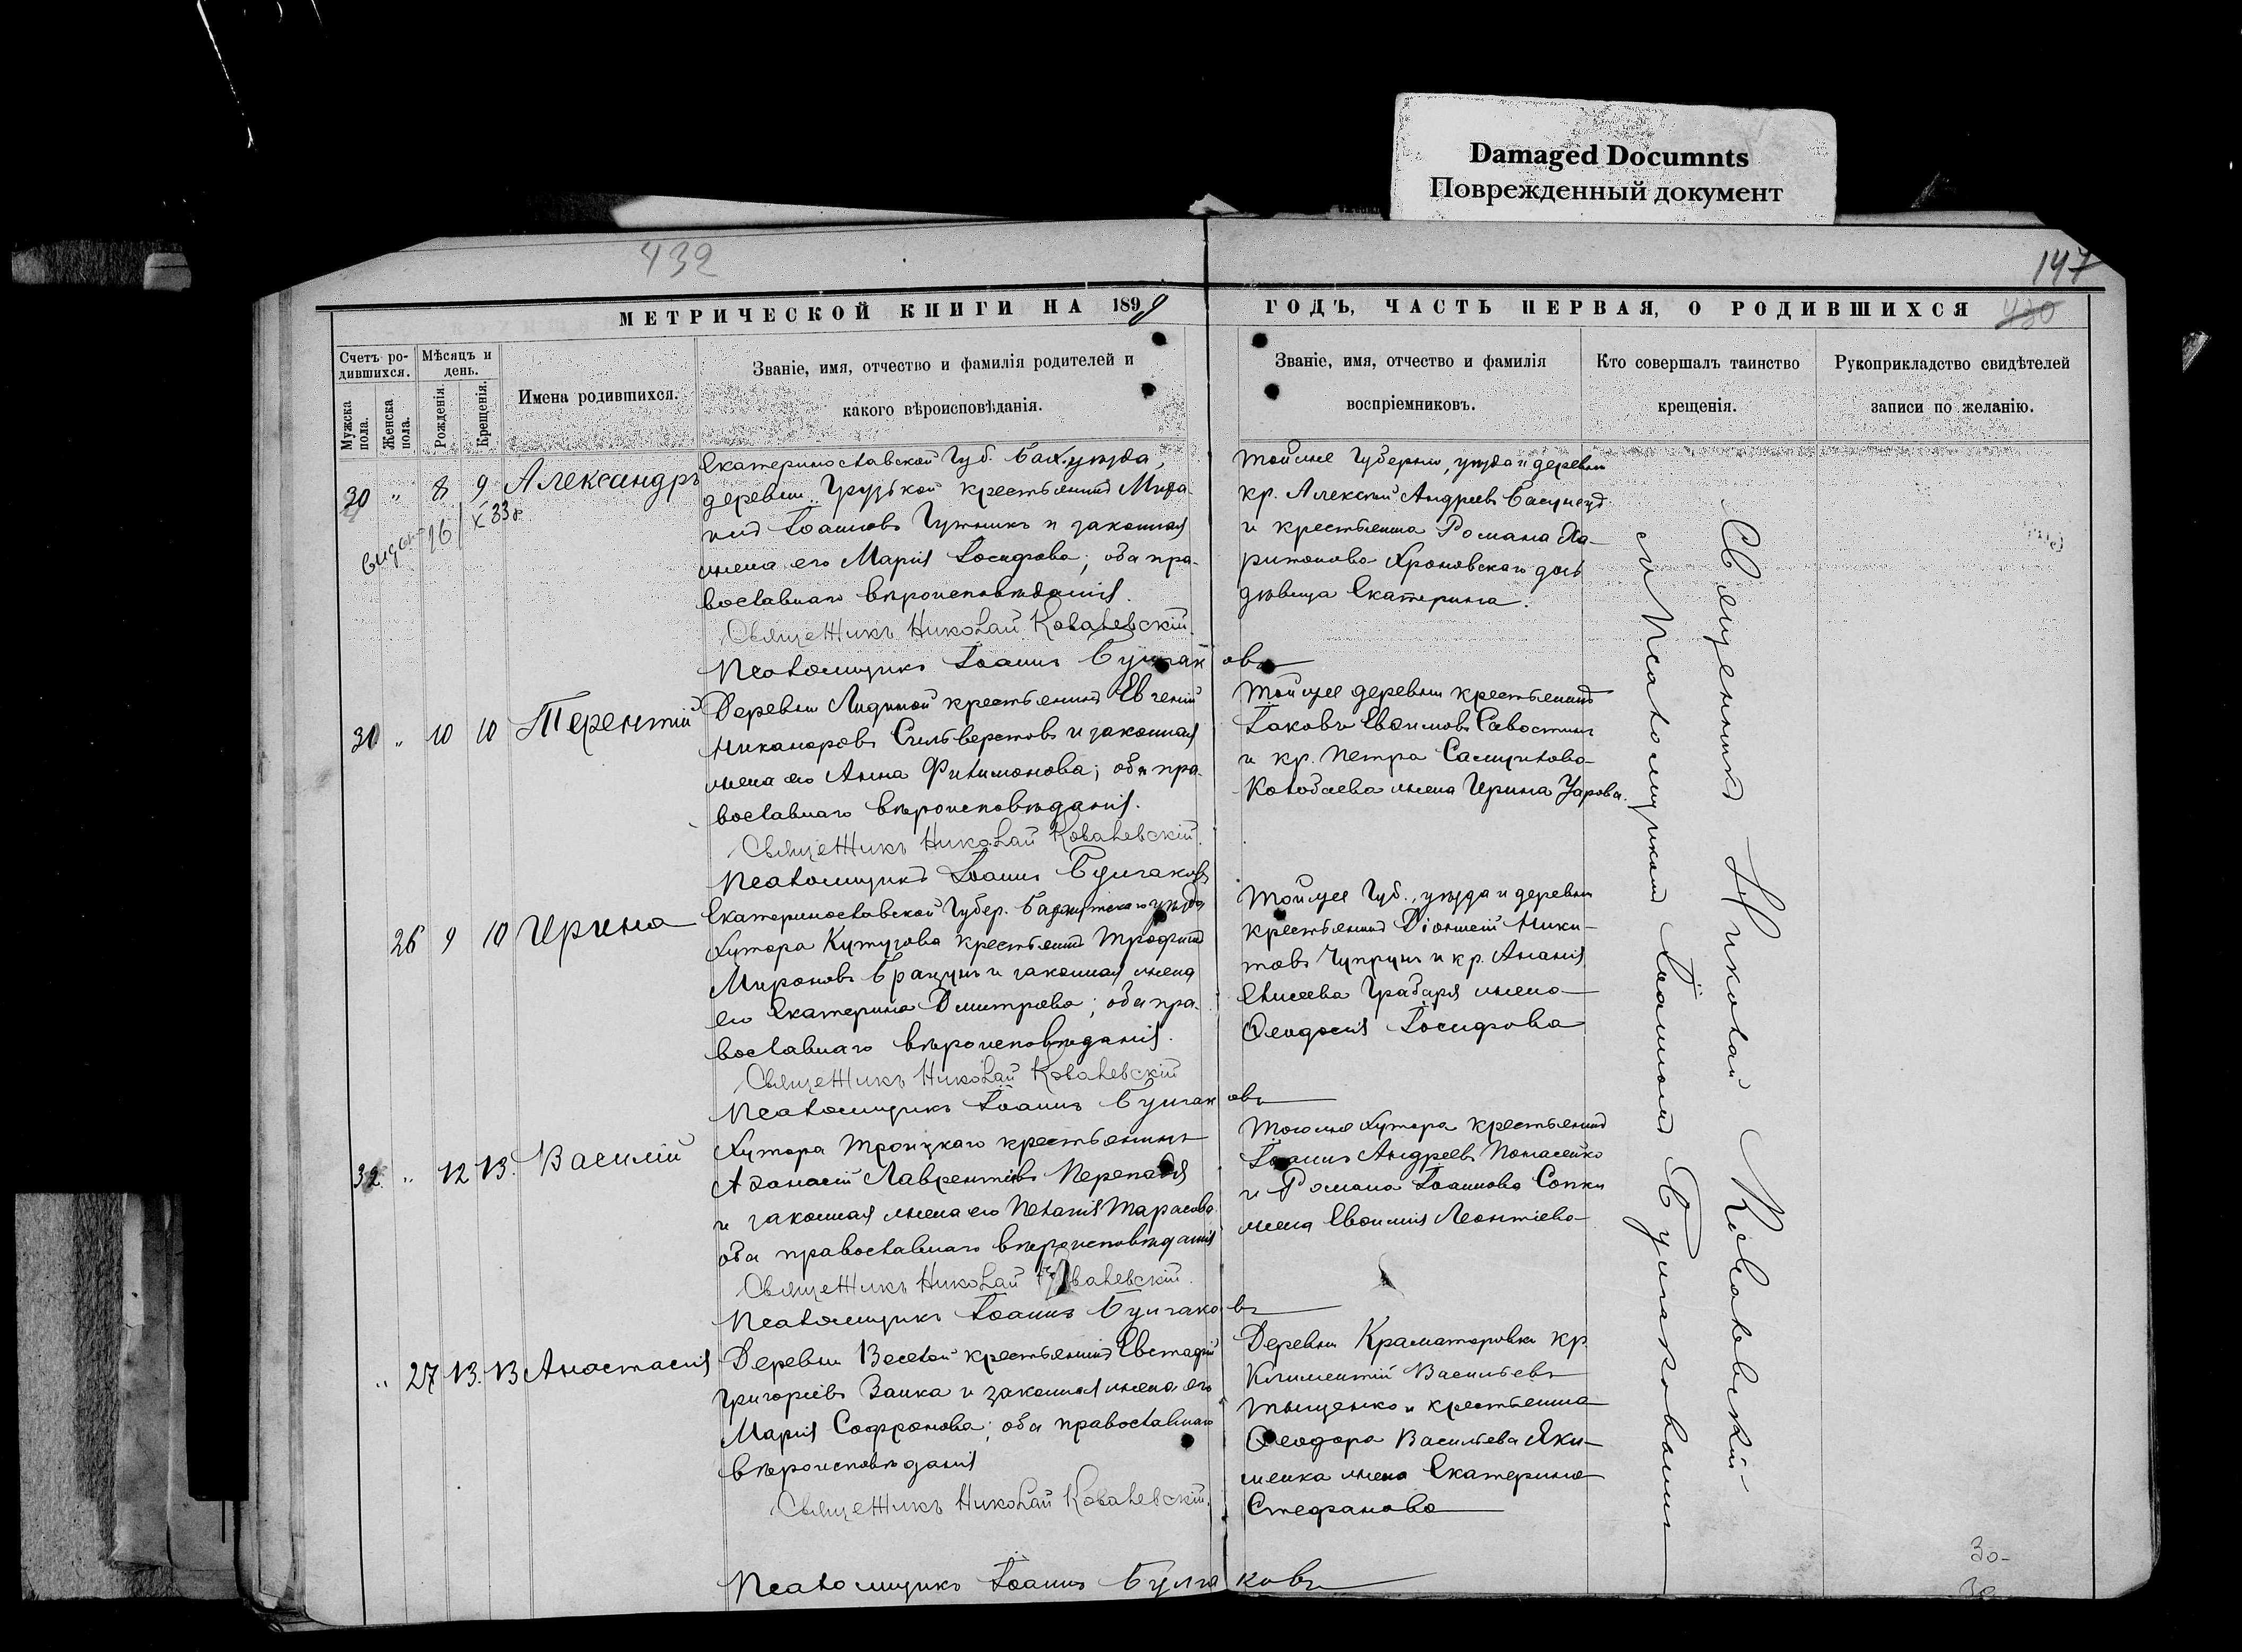 Damaged Documnts
Поврежденный документ
432
147
МЕТРИЧЕСКОЙ КНИГИ НА 1899
ГОДЪ, ЧАСТЬ ПЕРВАЯ, О РОДИВШИХСЯ
430
Счетъ ро-
дившихся.
Мѣсяцъ и
день.
Мужска
пола.
Женска
пола.
Рожденія.
Крещенія.
Имена родившихся.
Званіе, имя, отчество и фамилія родителей и
какого вѣроисповѣданія.
Званіе, имя, отчество и фамилія
воспріемниковъ.
Кто совершалъ таинство
крещенія.
Рукоприкладство свидѣтелей
записи по желанію.
30 " 8 9 Александръ
16/X 33 г.
Екатеринославской Губ. Бах. уѣзда,
деревни крестьянинъ
Іоанновъ и законная
жена его Марія Іосифова; оба пра-
вославнаго вѣроисповѣданія.
Священникъ Николай Ковалевскій.
Псаломщикъ Іоаннъ Булгаковъ
Тойже Губерніи, уѣзда и деревни
кр. Алексій Андреевъ
и крестьянина Романа Ха-
ритонова Хроновскаго дочь
дѣвица Екатерина.
31 " 10 10 Терентій
Деревни крестьянинъ Евгеній
Никаноровъ Сильверстовъ и законная
жена его Анна Филимонова; оба пра-
вославнаго вѣроисповѣданія.
Священникъ Николай Ковалевскій.
Псаломщикъ Іоаннъ Булгаковъ
Тойже деревни крестьянинъ
Іаковъ Евѳимовъ Савостинъ
и кр. Петра Самуилова
Колобаева жена Ирина Уарова.
26 9 10 Ирина
Екатеринославской Губер. Бахмутскаго уѣзда
Хутора Кутузова крестьянинъ Трофимъ
Мироновъ и законная жена
его Екатерина Дмитріева; оба пра-
вославнаго вѣроисповѣданія.
Священникъ Николай Ковалевскій
Псаломщикъ Іоаннъ Булгаковъ
Тойже Губ., уѣзда и деревни
крестьянинъ Діонисій Ники-
товъ Чупрунъ и кр. Ананія
Елисеева Грабаря жена
Ѳеодосія Іосифова
32 " 12 13. Василій
Хутора Троицкаго крестьянинъ
Аѳанасій Лаврентіевъ
и законная жена его Пелагія Тарасова
оба православнаго вѣроисповѣданія
Священникъ Николай Ковалевскій.
Псаломщикъ Іоаннъ Булгаковъ
Тогоже хутора крестьянинъ
Іоаннъ Андреевъ
и Романа Іоаннова Сопки
жена Евѳимія Леонтіева
" 27 13. 13 Анастасія
Деревни Веселой крестьянинъ Евстафій
Григоріевъ Заика и законная жена его
Марія Софронова; оба православнаго
вѣроисповѣданія
Священникъ Николай Ковалевскій.
Псаломщикъ Іоаннъ Булгаковъ
Деревни Краматоровки кр.
Климентій Васильевъ
Тыщенко и крестьянина
Ѳеодора Васильева Яки-
менка жена Екатерина
Стефанова
Священникъ Николай Ковалевскій
съ Псаломщикомъ Іоанномъ Булгаковымъ
30-
30